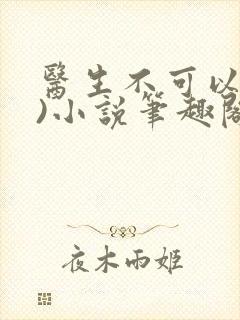 醫生不可以
)小說筆趣閣
夜木雨姬